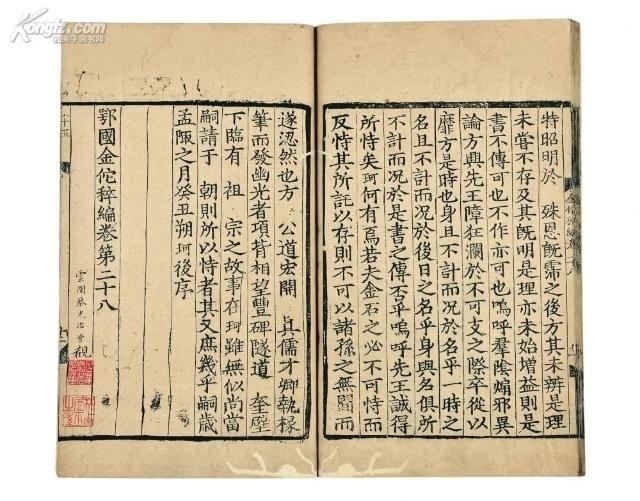 特昭明於 殊恩旣霈之後方其未辨是理
未嘗不存及其旣明是理亦未始增益則是
書不傳可也不作亦可也嗚呼羣陰煽邪異
論方興先王障狂瀾於不可支之際卒從以
靡方是時也身且不計而况於名乎一時之
名且不計而况於後日之名乎身與名俱所
不計而况於是書之傳否乎嗚呼先王誠得
所恃矣珂何有焉若夫金石之必不可恃而
反恃其所託以存則不可以諸孫之無聞而
遂泯然也方 公道宏開 真儒才卿執椽
筆而發幽光者項背相望豐碑隧道 奎壁
下臨有 祖 宗之故事在珂雖無似尚當
嗣請于 朝則所以恃者其又庶幾乎嗣歲
孟陬之月癸丑朔珂後序
鄂國金佗稡編卷第二十八
雲間蔡光治曾觀
Kongfz.com
孔夫子旧书网